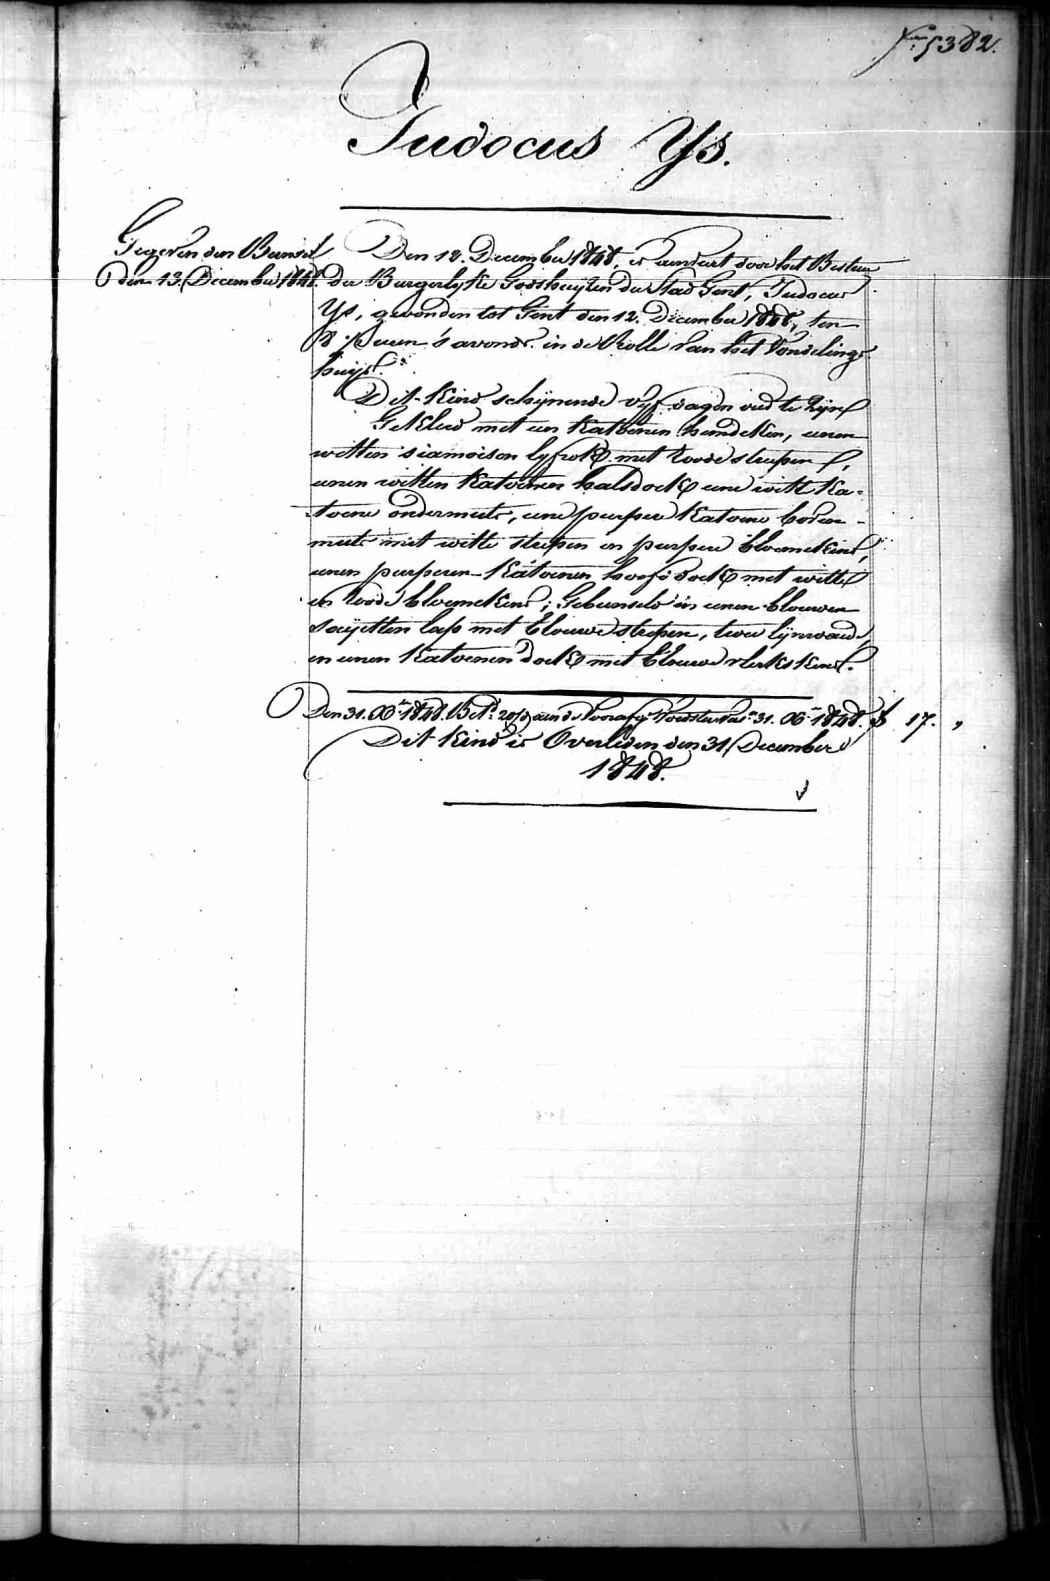 fo 5382.
Judocus Ys.
Gegeven den Bunsel
den 13. December 1848.
Den 12. December 1848, is aenveird door het Bestuer
der Burgerlyke Godshuyzen der Stad Gent, Judocus
Ys, gevonden tot Gent den 12. December 1848, ten
8 ½ uren 's avonds in de Rolle van het Vondelings
huys.
Dit Kind schynende vyf dagen oud te zyn
Gekleed met een Katoenen hemdeken, eenen
witten siamoisen lyfrok met roode streepen,
eenen witten Katoenen halsdoek eene witte Ka-
toene ondermuts, eene purpere Katoene boven-
muts met witte strepen en purpere bloemekens,
eenen purperen Katoenen hoofddoek met witte
en roode bloemekens; Gebunseld in eenen blauwen
sayetten lap met blauwe strepen, twee lynwaede
en eenen Katoenen doek met blauwe vlekskens.
Den 31. Xber 1848. Betd. aen de Voorafg. Voedster 31. Xber 1848. f 17. "
Dit Kind is Overleden den 31 December
1848.